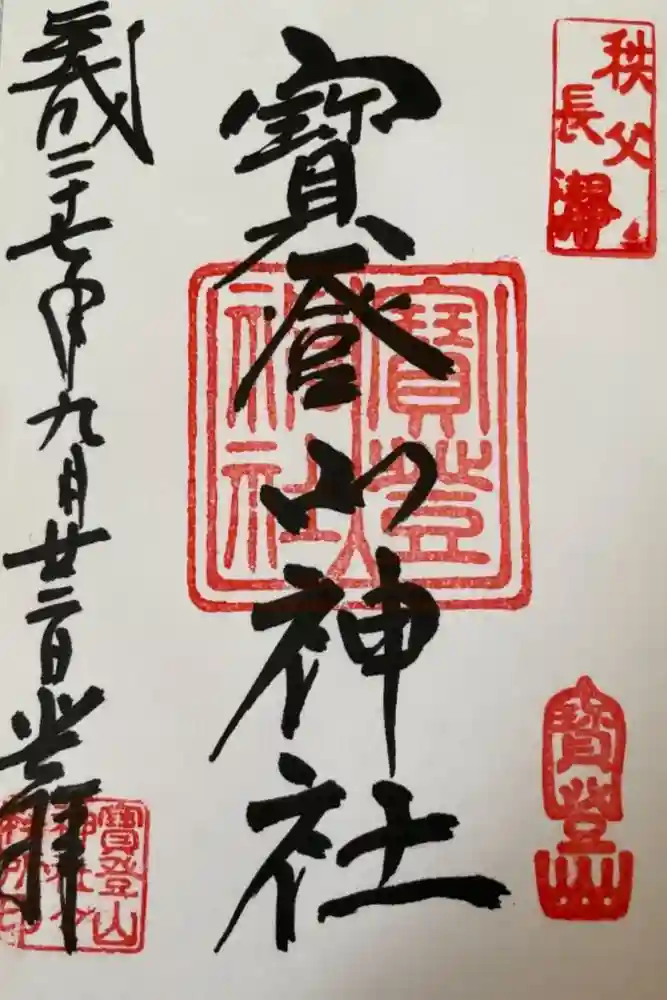 秩父
長瀞
寳登山神社
寳登山
神社
寳登山
平成二十七年九月廿二日登拝
寳登山
神社々
務所印